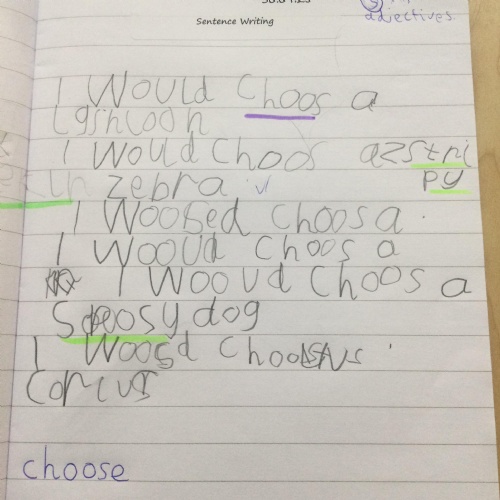 Sentence Writing
adjectives
I Would choos a
I Would choos azstri
py
zebra
I Woosed choos a
I Wooud choos a
I Wooud choos a
Spoosy dog
I Woosd choos
choose